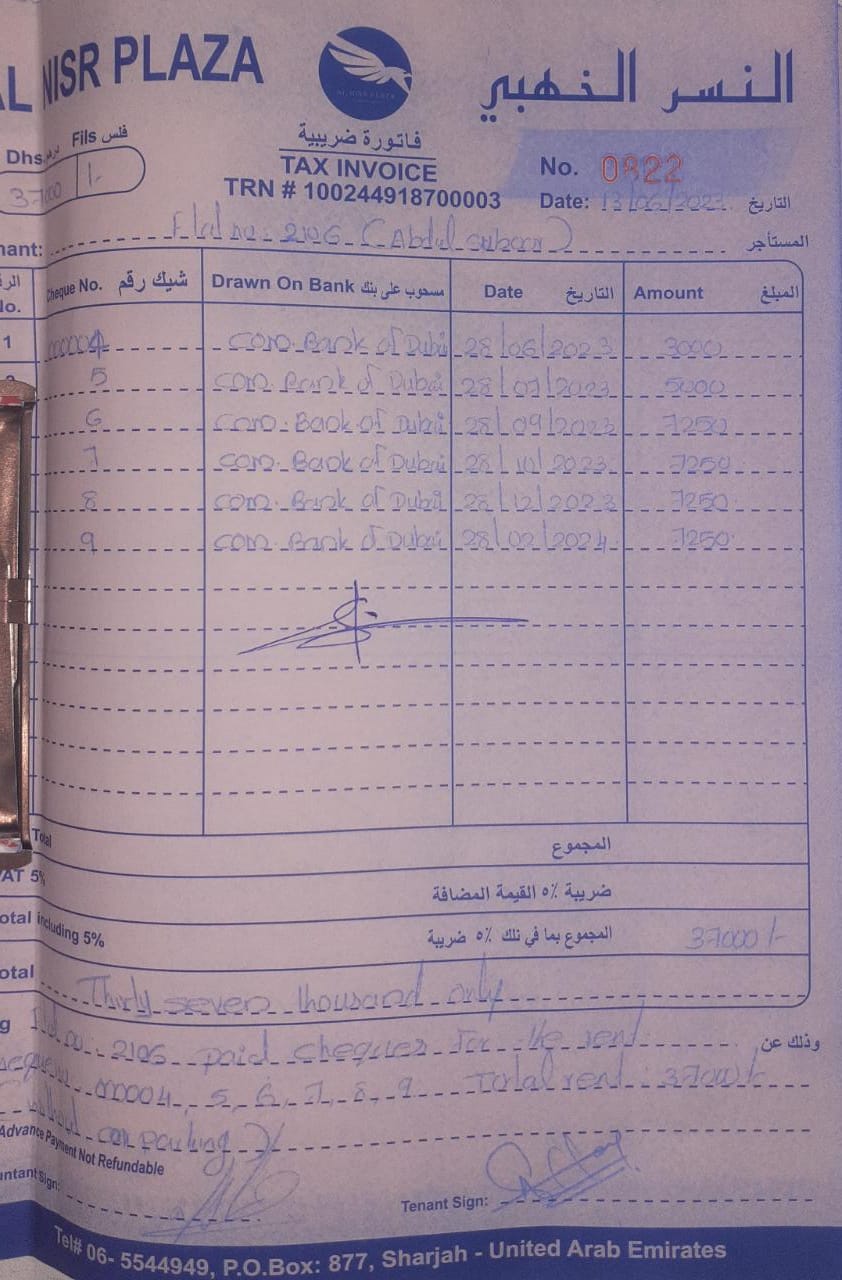 AL NISR PLAZA
النسر الذهبي
AL NISR PLAZA
فاتورة ضريبية
TAX INVOICE
TRN # 100244918700003
Dhs. درهم Fils فلس
37000 /-
No. 0822
Date: 13/06/2023 التاريخ
nant: Flat no: 2106 (Abdul ) المستأجر
No. Cheque No. شيك رقم Drawn On Bank مسحوب على بنك Date التاريخ Amount المبلغ
1 000004 Com. Bank of Dubai 28/06/2023 3000
5 Com. Bank of Dubai 28/07/2023 5000
6 Com. Bank of Dubai 28/09/2023 7250
7 Com. Bank of Dubai 28/10/2023 7250
8 Com. Bank of Dubai 28/12/2023 7250
9 Com. Bank of Dubai 28/02/2024 7250
Total المجموع
VAT 5% ضريبة ٥٪ القيمة المضافة
otal including 5% المجموع بما في تلك ٥٪ ضريبة 37000/-
otal Thirty seven thousand only
g Flat no: 2106 paid cheques for the rent وذلك عن
000004, 5, 6, 7, 8, 9 Total rent: 37000/-
without car parking
Advance Payment Not Refundable
untant Sign: Tenant Sign:
Tel# 06- 5544949, P.O.Box: 877, Sharjah - United Arab Emirates